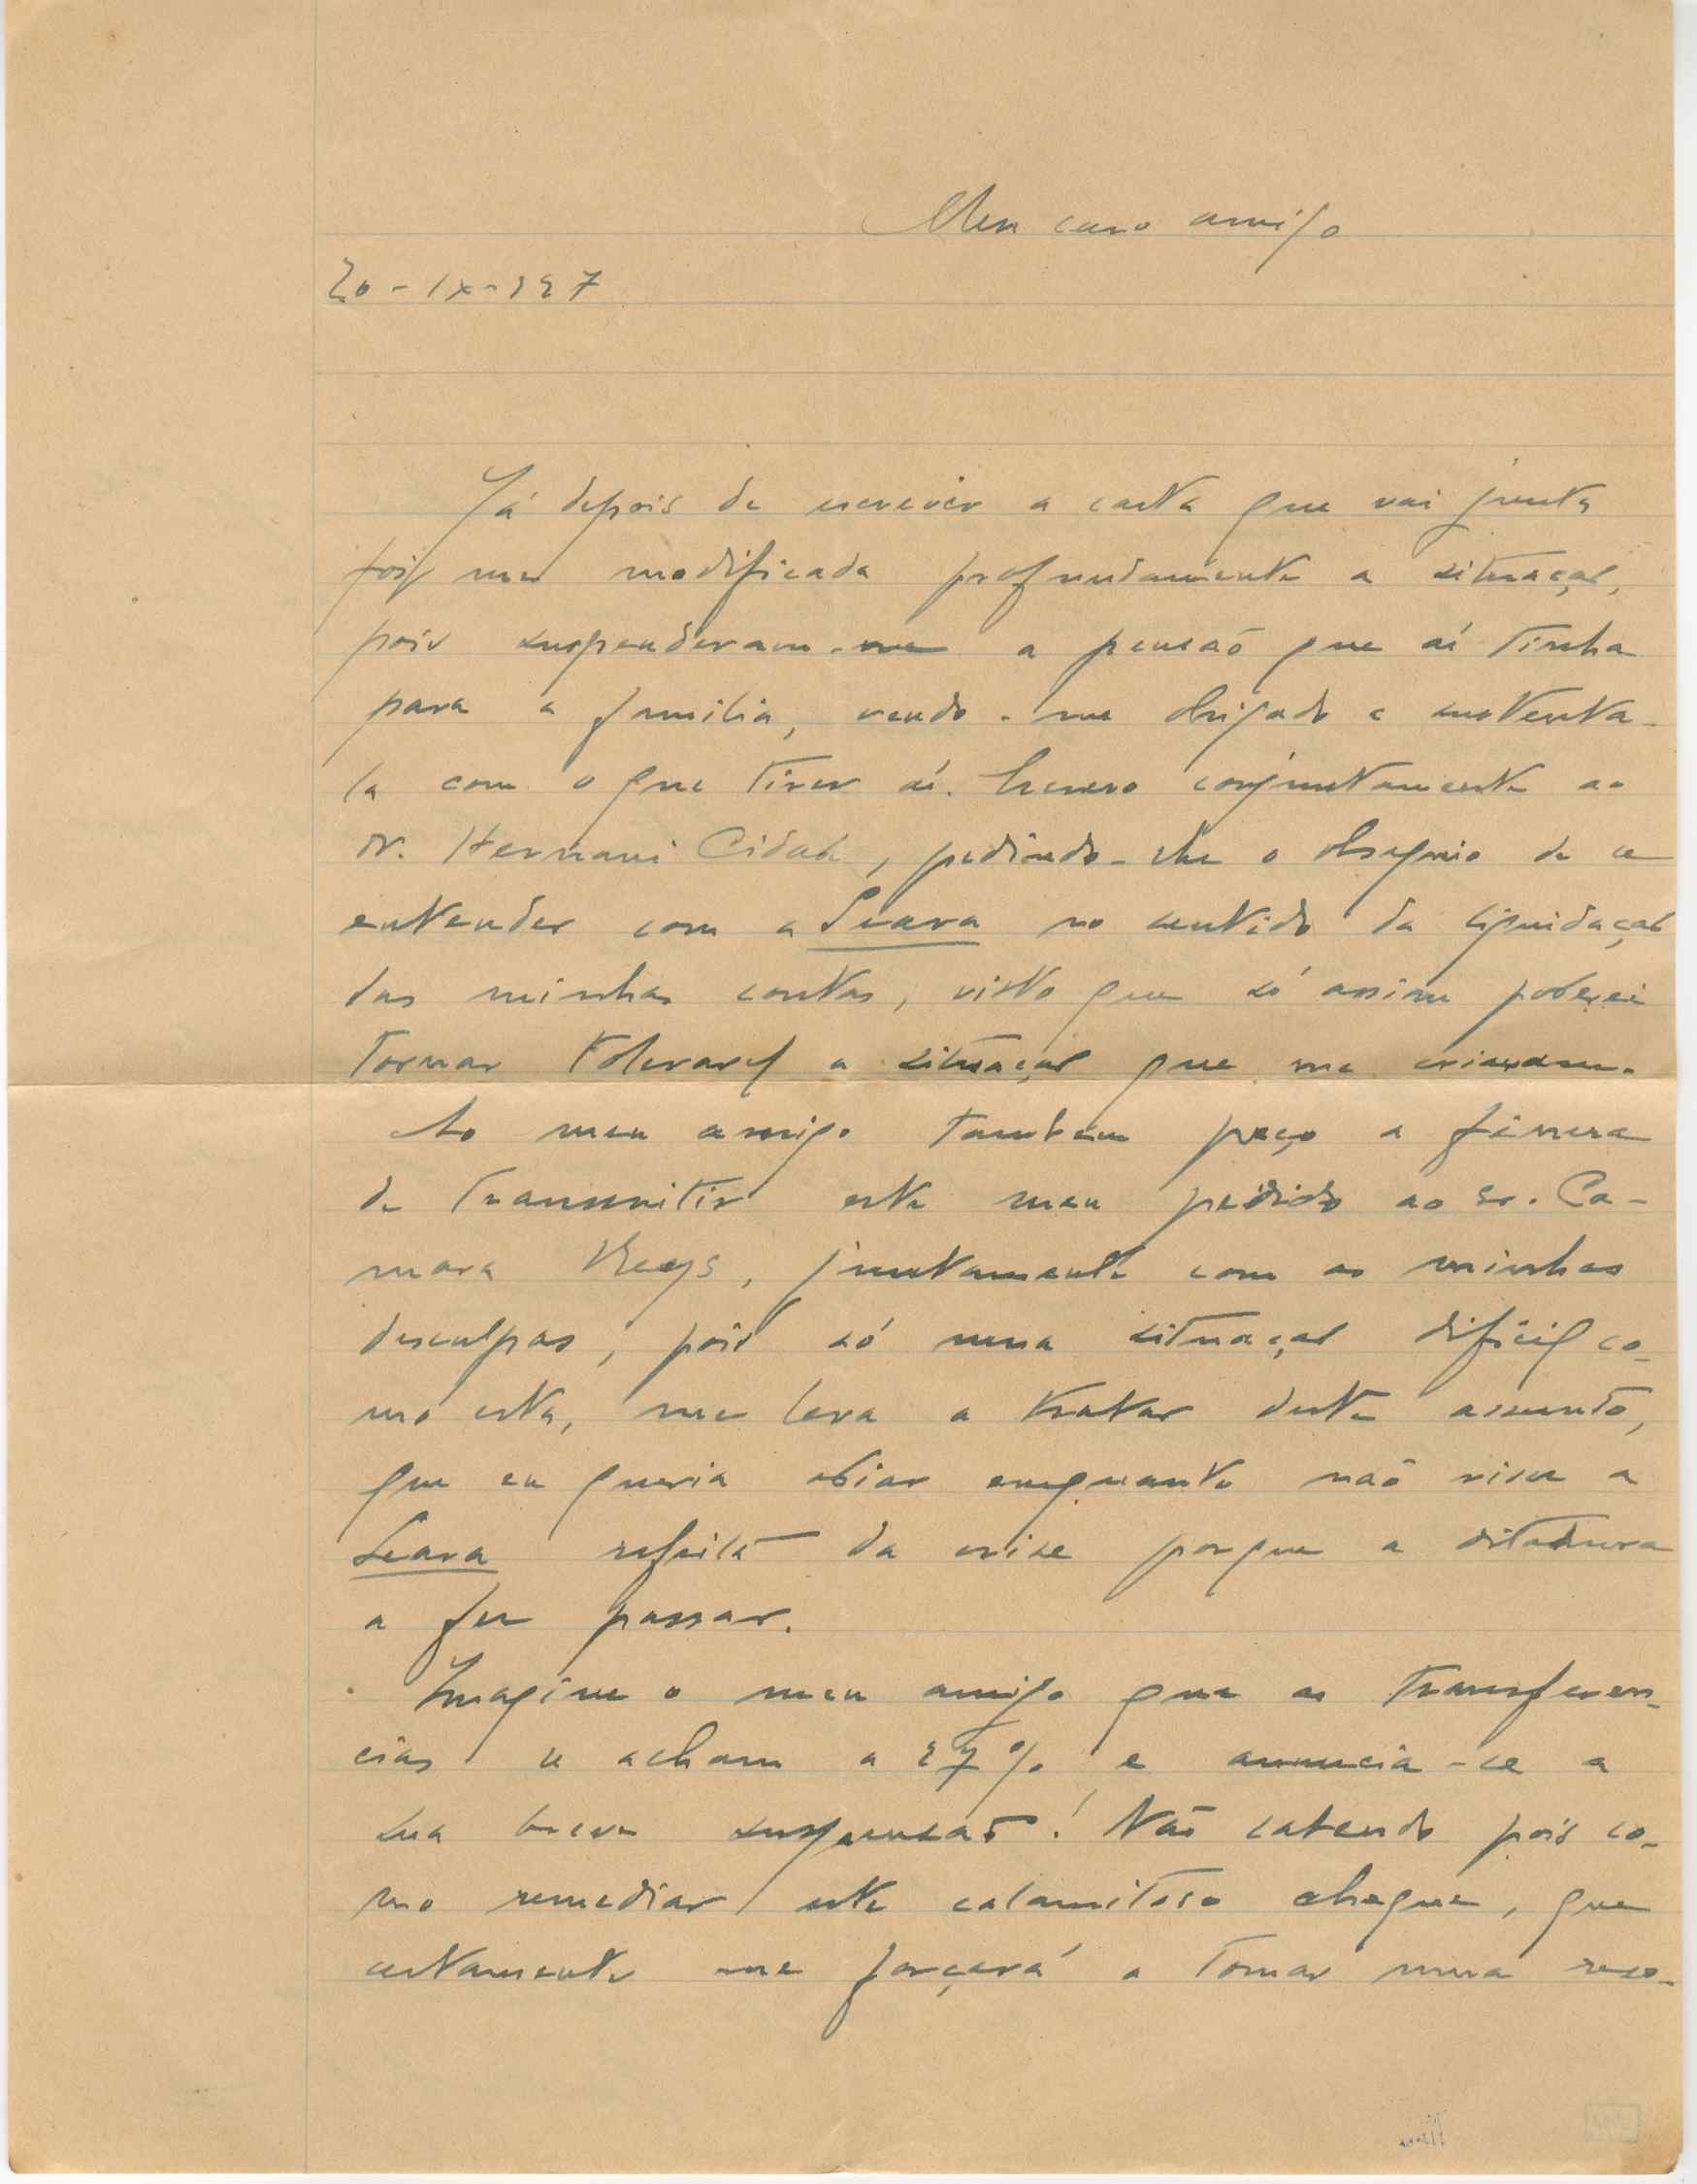 Meu caro amigo
20-IX-927
Já depois de escrever a carta que vai junta
foi-me modificada profundamente a situaçao,
pois suspenderam-me a pensaõ que aí tinha
para a familia, vendo-me obrigado a sustenta-
la com o que tirar aí. Escrevo conjuntamente ao
dr. Hernani Cidade, pedindo-lhe o obsequio de se
entender com a Seara no sentido da liquidaçaõ
das minhas contas, visto que só assim poderei
tornar toleravel a situaçaõ que me criaram.
Ao meu amigo tambem peço a fineza
de transmitir este meu pedido ao sr. Ca-
mara Reys, juntamente com as minhas
desculpas, pois só numa situaçaõ dificil co-
mo esta, me leva a tratar deste assunto,
que eu queria adiar emquanto naõ visse a
Seara refeita da crise porque a ditadura
a fez passar.
Imagine o meu amigo que as transferen-
cias se acham a 27% e anuncia-se a
sua breve suspensaõ! Não sabendo pois co-
mo remediar este calamitoso cheque, que
certamente me forçará a tomar uma reso-